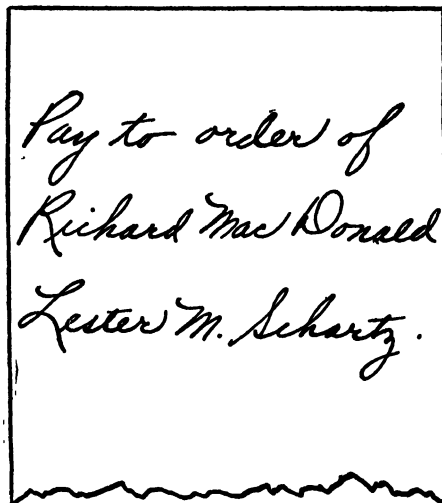 Pay to order of
Richard Mac Donald
Lester M. Schartz.